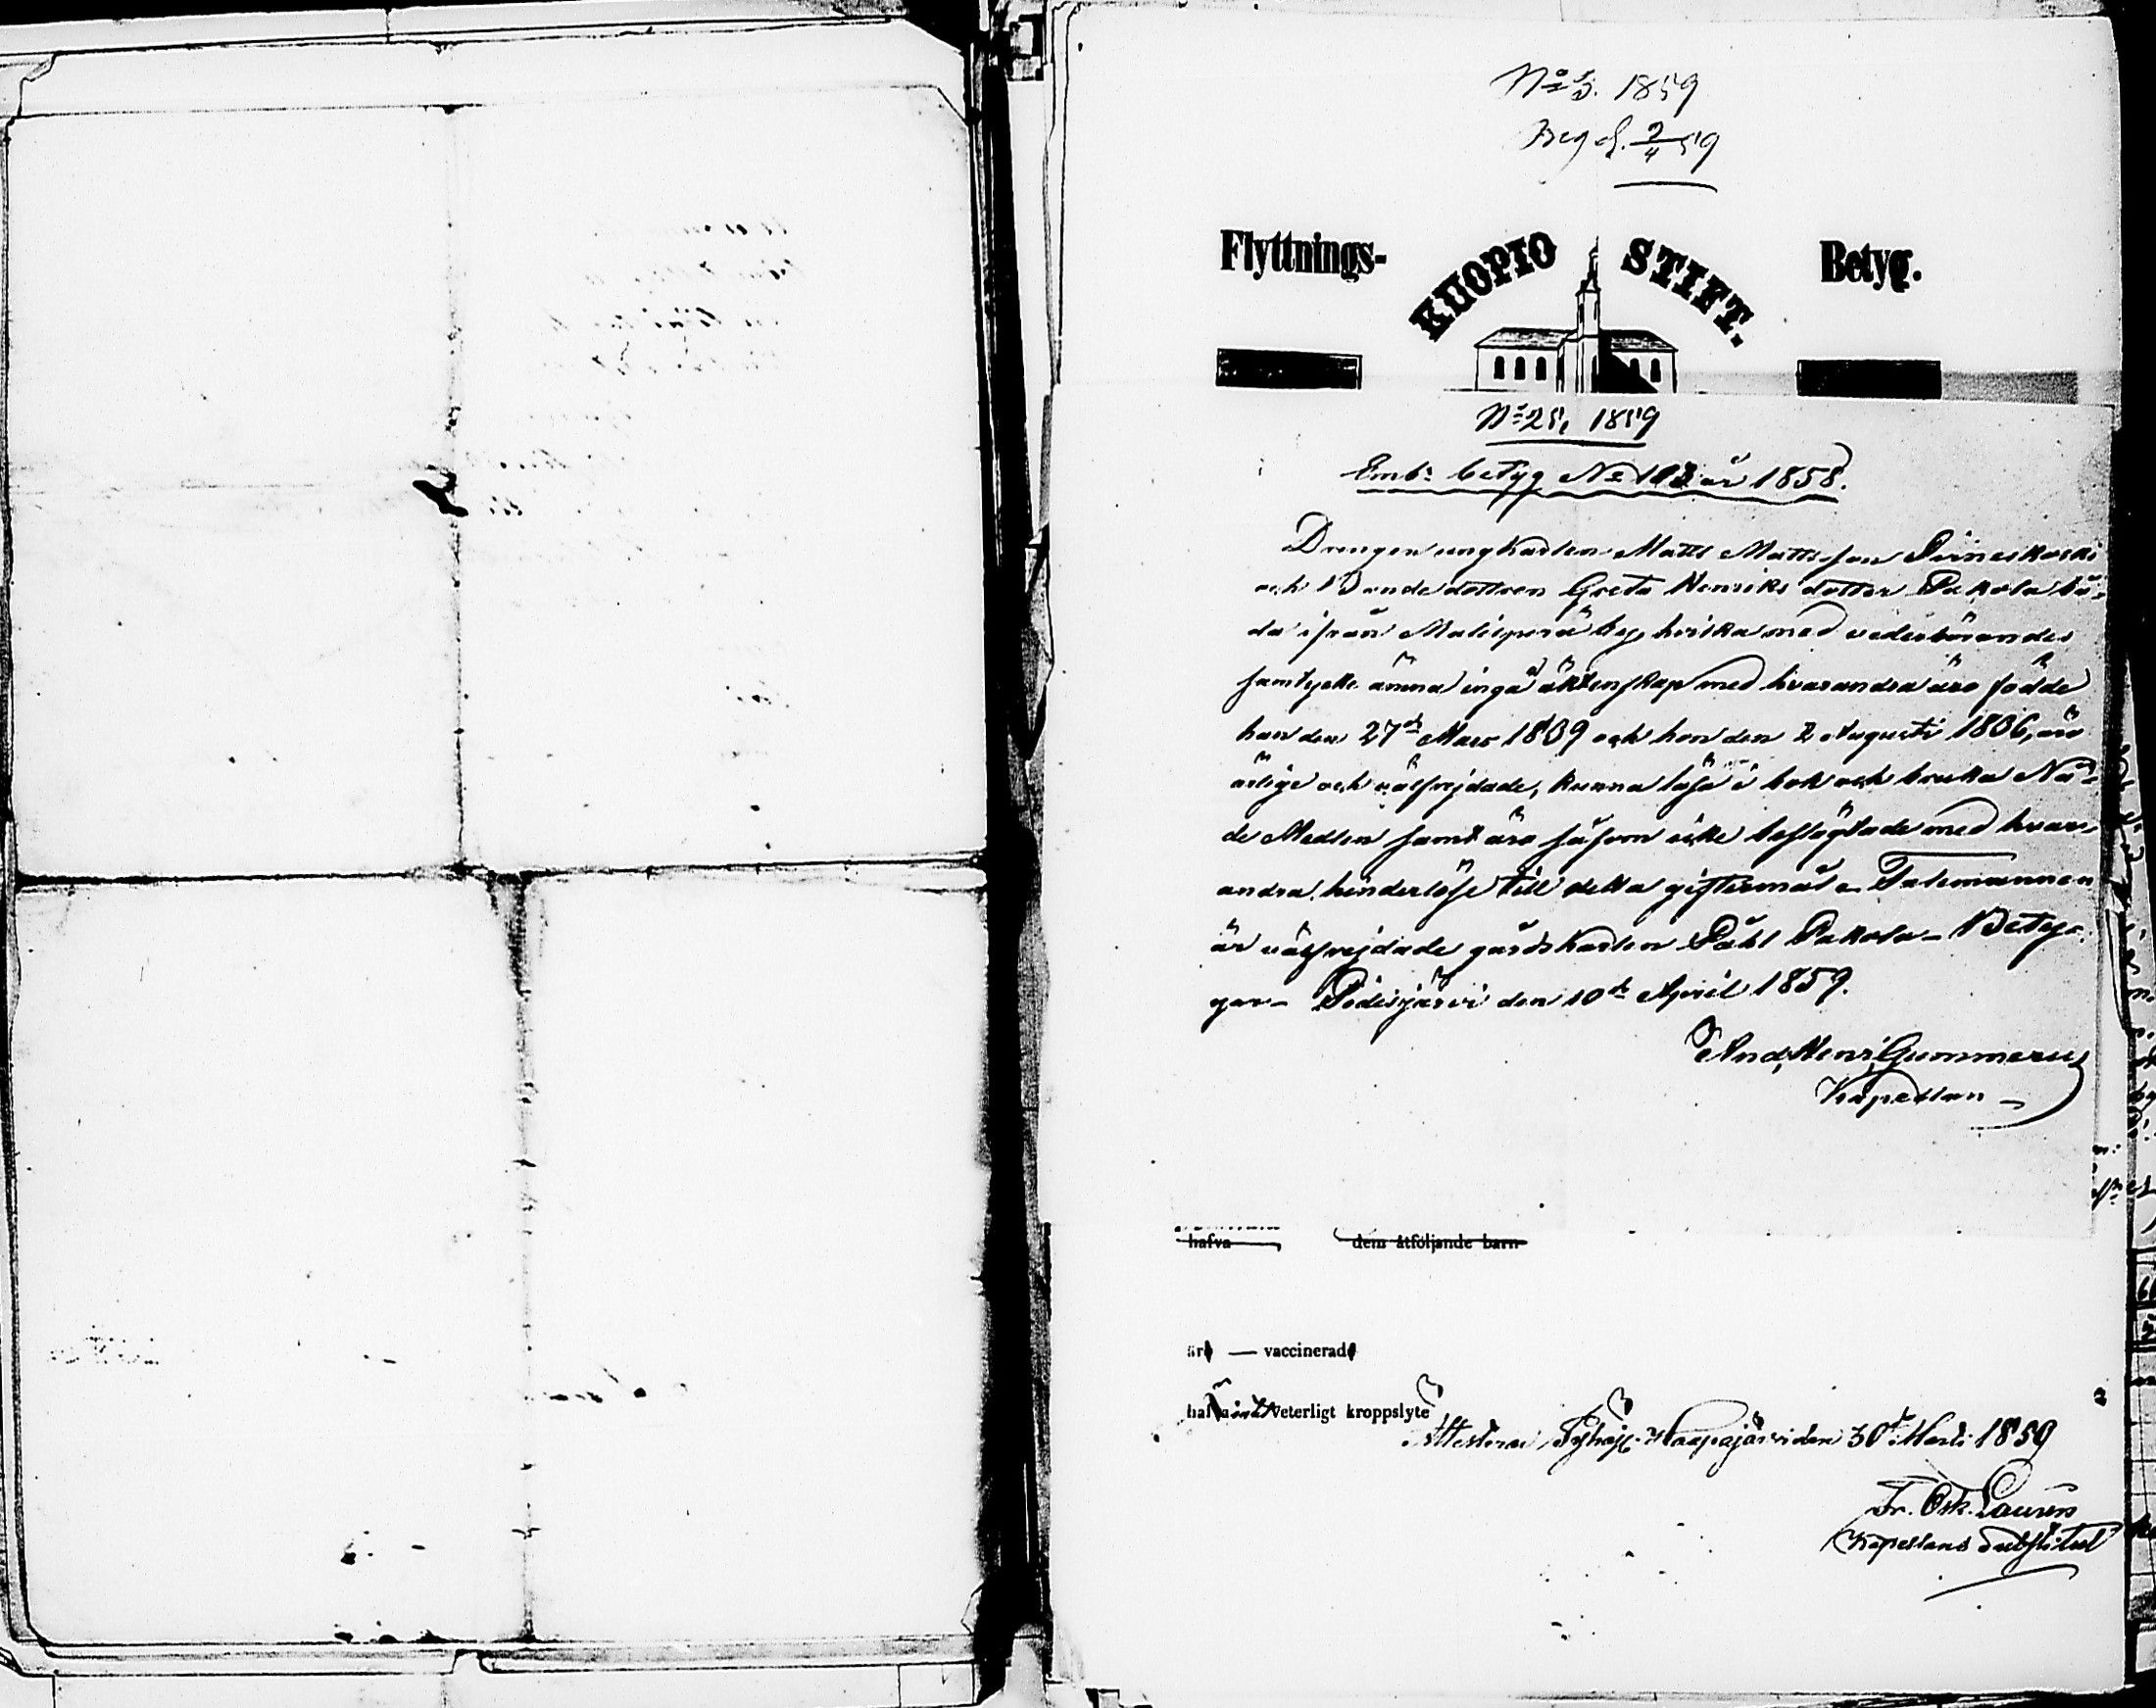 No 3. 1859
Flyttnings- KUOPIO STIFT. Betyg.
No 25, 1859
Emb: betyg No 103 år 1858.
Drengen ungkarlen Matts Mattsson
och Bondedottren Greta Henriksdotter Pakola bå-
da ifrån by, hvilka med vederbörandes
samtycke ämna ingå äktenskap med hvarandra äro födde
han den 27de Mars 1839 och hon den 2 Augusti 1836, äro
ärlige och välfrejdade, kunna läsa i bok och bruka Nå-
de Medlen samt äro såsom icke beslägtade med hvar-
andra hinderlöse till detta giftermål – Talemannen
är välfrejdade gårdskarlen Påhl Pakola – Bety-
gar – Pidisjärvi den 10de April 1859.
And, Henr, Gummerus
Kapellan –
hafva dem åtföljande barn
är — vaccinerad
hafva veterligt kroppslyte
Attesterar Haapajärvi den 30 Martii 1859
Fr. Osk. Laurén
Kapellans Substitut